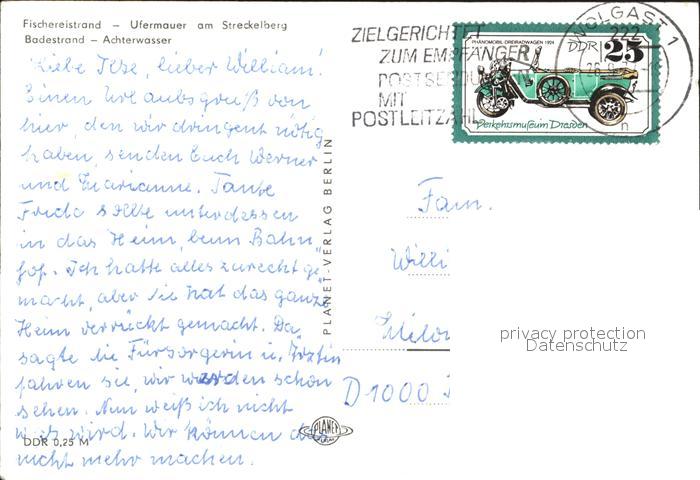 Fischereistrand – Ufermauer am Streckelberg
Badestrand – Achterwasser
Liebe Ilse, lieber William!
Einen Urlaubsgruß von
hier, den wir dringent nötig
haben, senden Euch Werner
und Marianne. Tante
Frida sollte unterdessen
in das Heim, beim Bahn
hof. Ich hatte alles zurecht ge
macht, aber sie hat das ganze
Heim verrückt gemacht. Da
sagte die Fürsorgerin u. Ärztin
fahren sie, wir werden schon
sehen. Nun weiß ich nicht
was wird. Wir können da
nicht mehr machen.
DDR 0,25 M
PLANET-VERLAG BERLIN
PLANET
ZIELGERICHTET
ZUM EMPFÄNGER
POSTSENDUNGEN
MIT
POSTLEITZAHL
PHÄNOMOBIL-DREIRADWAGEN 1924
DDR 25
Verkehrsmuseum Dresden
WOLGAST 1
222
n
Fam.
Willi
D 1000
privacy protection
Datenschutz